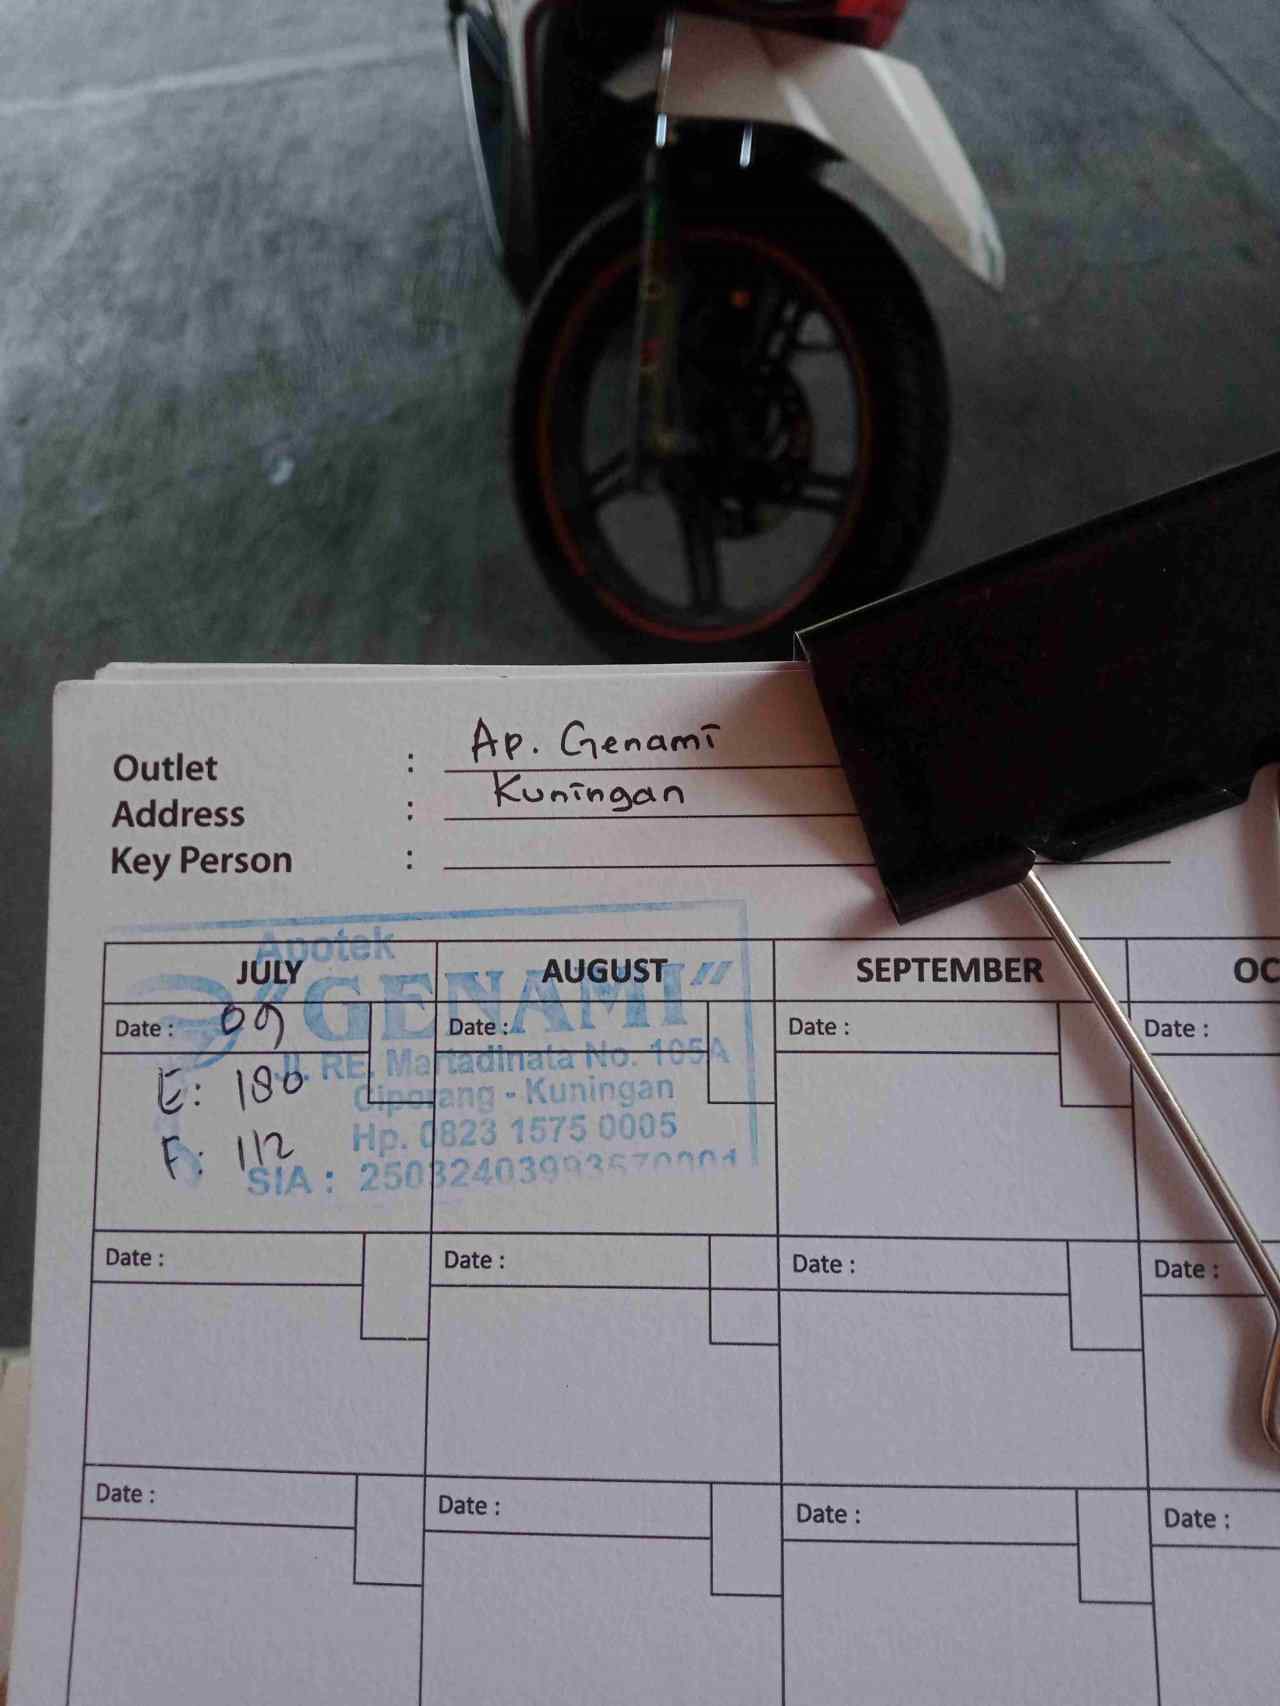 Outlet : Ap. Genami
Address : Kuningan
Key Person :
Apotek
"GENAMI"
Jl. RE. Martadinata No. 105A
Ciporang - Kuningan
Hp. 0823 1575 0005
SIA :
JULY AUGUST SEPTEMBER OC
Date : 09 Date : Date : Date :
E: 180
F: 112
Date : Date : Date : Date :
Date : Date : Date : Date :